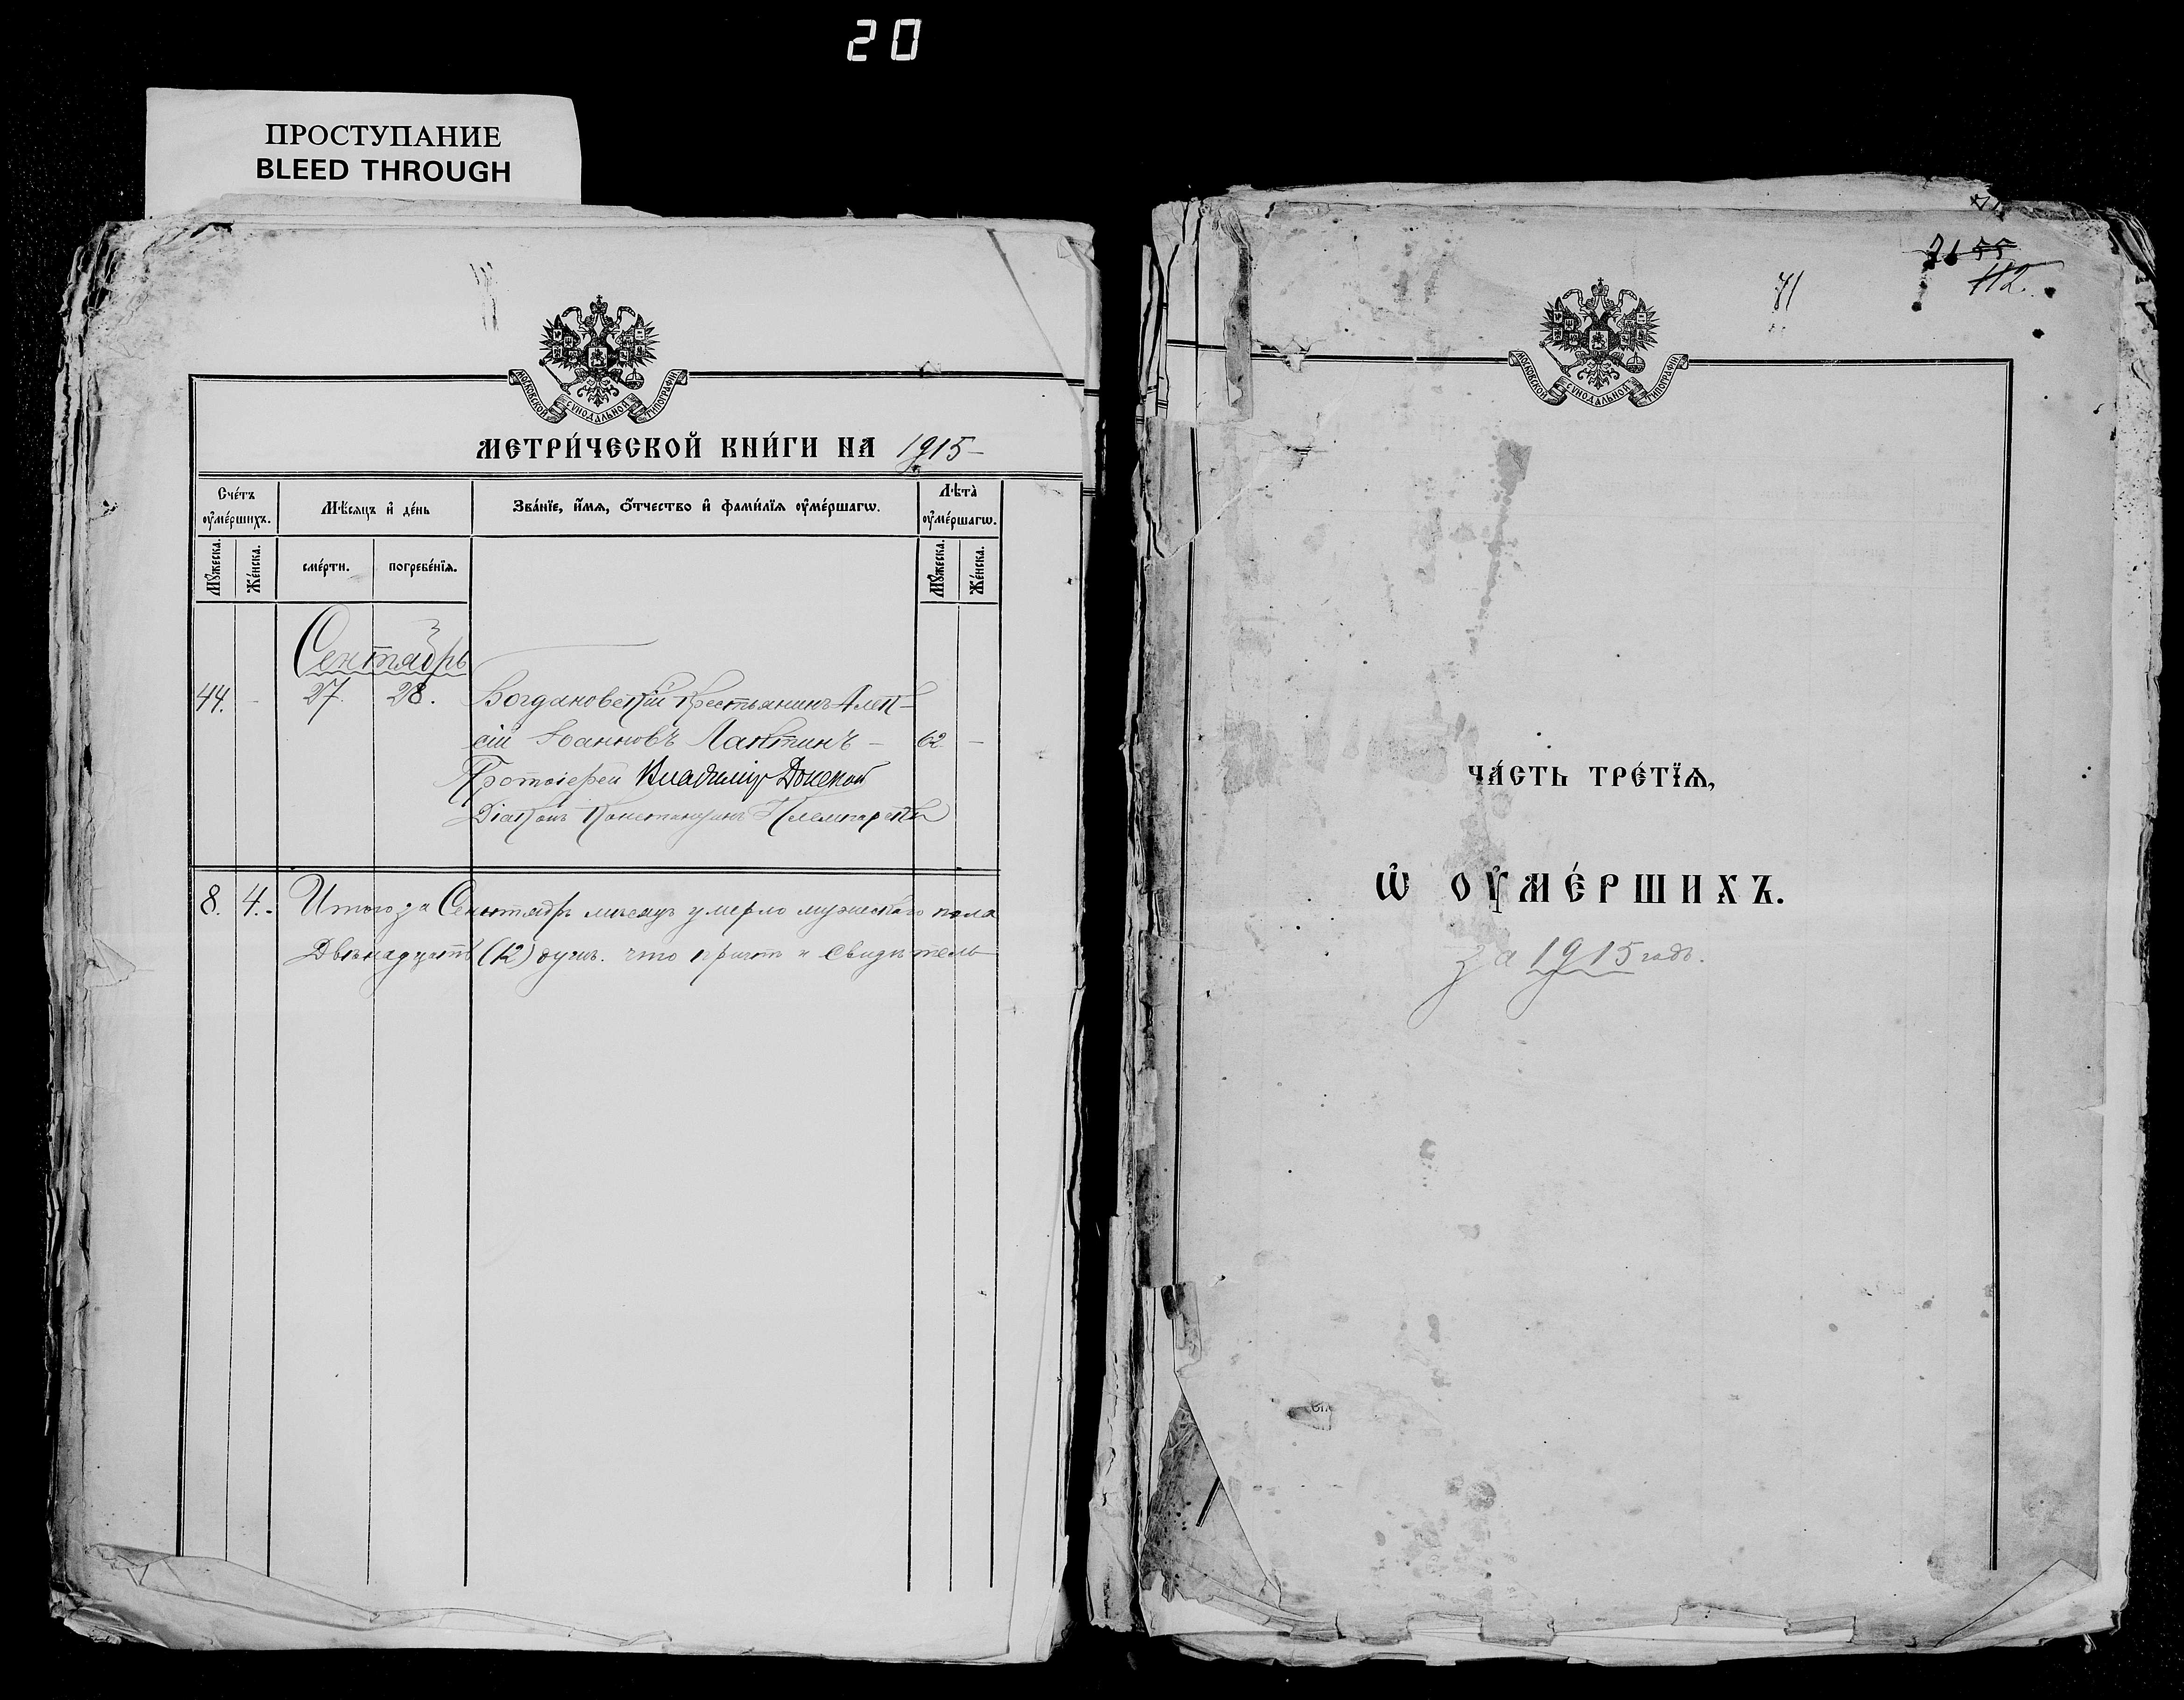 20
ПРОСТУПАНИЕ
BLEED THROUGH
МОСКОВСКОЙ СѴНОДАЛЬНОЙ ТИПОГРАФІИ
МЕТРИ́ЧЕСКОЙ КНИ́ГИ НА 1915
Сче́тъ оу҆ме́ршихъ.
Мѣ́сяцъ и҆ де́нь
Зва́нїе, и҆́мѧ, ѻ҆́тчество и҆ фами́лїѧ оу҆ме́ршагѡ.
Лѣта̀ оу҆ме́ршагѡ.
Мꙋ́жеска.
Же́нска.
сме́рти.
погребе́нїѧ.
Мꙋ́жеска.
Же́нска.
Сентябрь
44. - 27. 28. Богдановскій крестьянинъ Алек-
сій Іоанновъ Лактинъ - 62 -
Протоіерей Владиміръ Донской
Діаконъ Константинъ
8. 4. Итого за Сентябрь мѣсяцъ умерло мужескаго пола
Двѣнадцать (12) душъ. что причтъ и свидѣтель
71
112.
МОСКОВСКОЙ СѴНОДАЛЬНОЙ ТИПОГРАФІИ
ЧА́СТЬ ТРЕ́ТЇѦ,
Ѡ҆ ОУ҆МЕ́РШИХЪ.
за 1915 годъ.